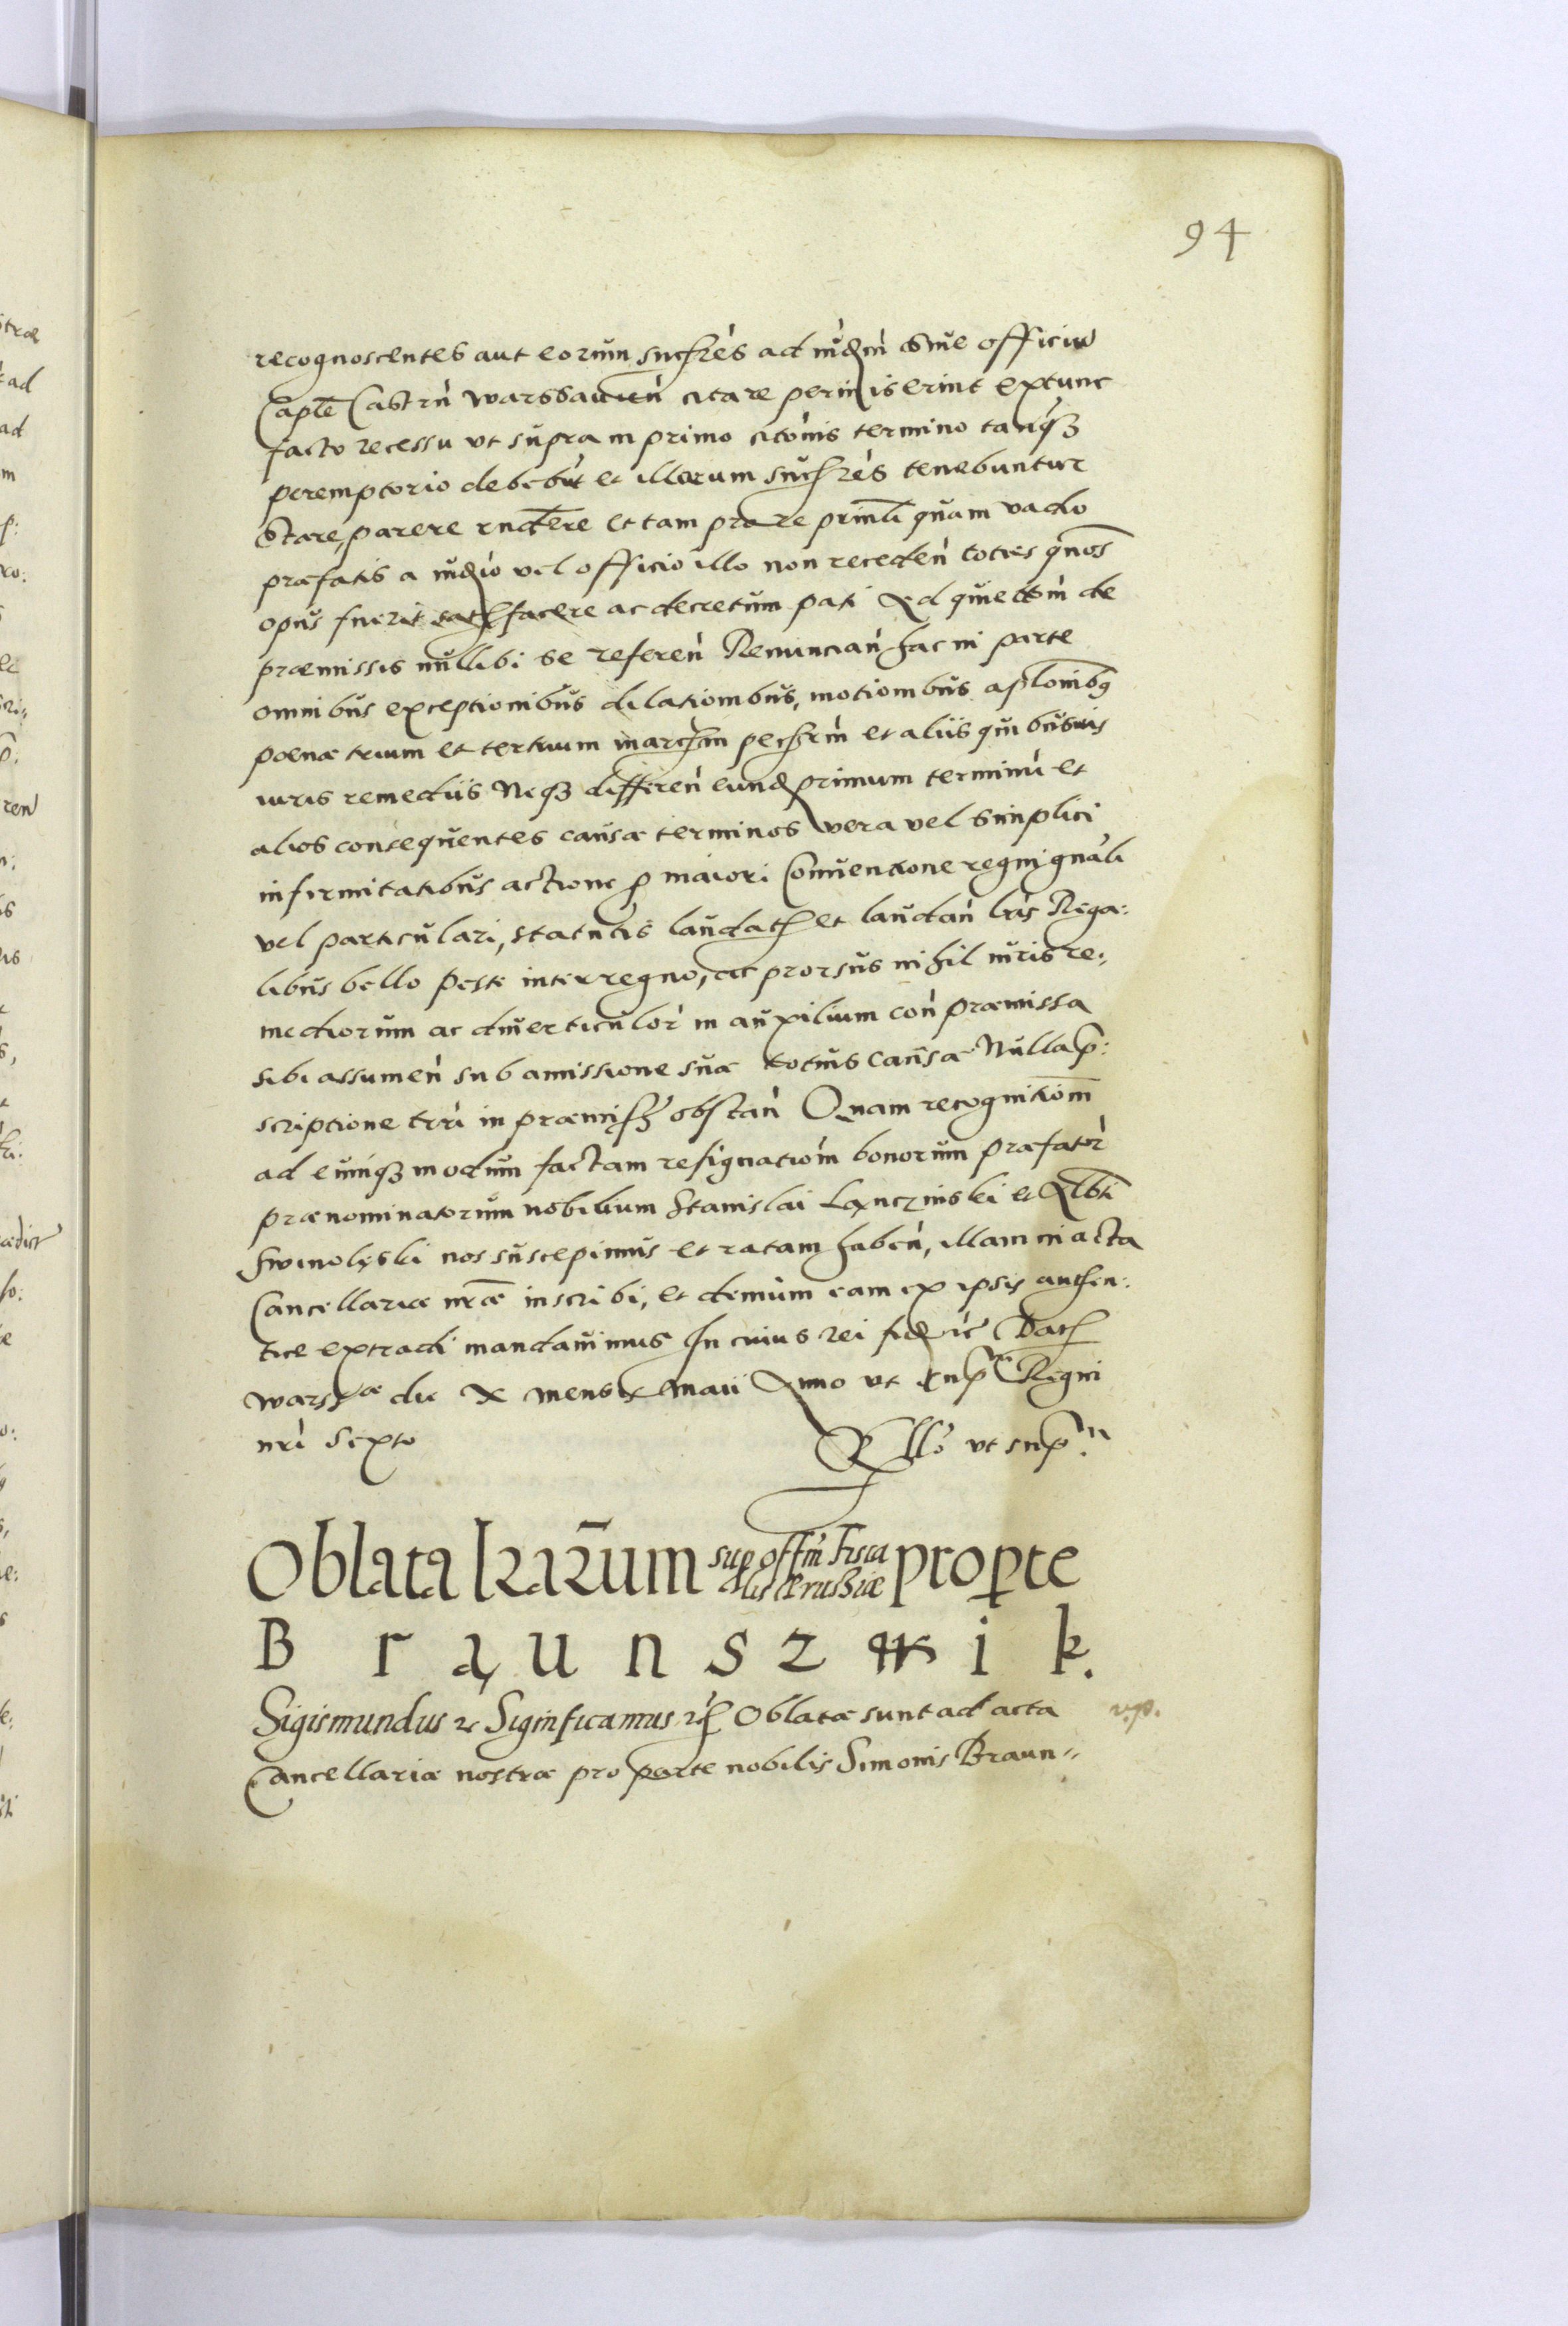 94
recognoscentes aut eorum succres ad iudm sive officiu
Captle Castrn Warssavien citare permiserint extunc
facto recessu ut supra in primo citonis termino tanq̃
peremptorio debebut et illorum succres tenebuntur
stare, parere rndere et tam pro re princli quam vadio
præfatis a iudio vel officio illo non receden toties qnos
opus fuerit satisfacere ac decretum pati Ad quiettm de
præmissis nullibi se referen Renuncian hac in parte
omnibus exceptionibus dilationibus, motionibus aplonibq
poenæ trium et tertium marcham et aliis quibusvis
iuris remediis Neq̃ differen eund primum terminu et
alios consequentes causæ terminos vera vel simplici
infirmitatibus actione p maiori Conventione regni gnali
vel particulari, statutis laudatis et laudan lris Rega:
libus bello peste interregno, ac prorsus nihil iuris re:
mediorum ac diverticulor in auxilium con præmissa
sibi assumen sub amissione suæ totius causæ Nulla p̃:
scriptione trri in præmiss obstan Quam recognitiom
ad eumq̃ modum factam resignatiom bonorum præfator
prænominatorum nobilium Stanislai Lanczinski et Albti
Swinolęski nos suscepimus et ratam haben, illam in acta
Cancellariæ nræ inscribi, et demum eam ex ipsis authen:
tice extradi mandavimus In cuius rei fid ic Dat
Warsæ die X mensis Maii Anno ut sup^ra Regni
nri Sexto
Rllo ut sup^a
Oblata lrarum sup offm Fisca
lis Prussiæ pro pte
B r a u n s z w i k.
Sigismundus ec Significamus ec Oblatæ sunt ad acta v.p.
Cancellariæ nostræ pro parte nobilis Simonis Braun=